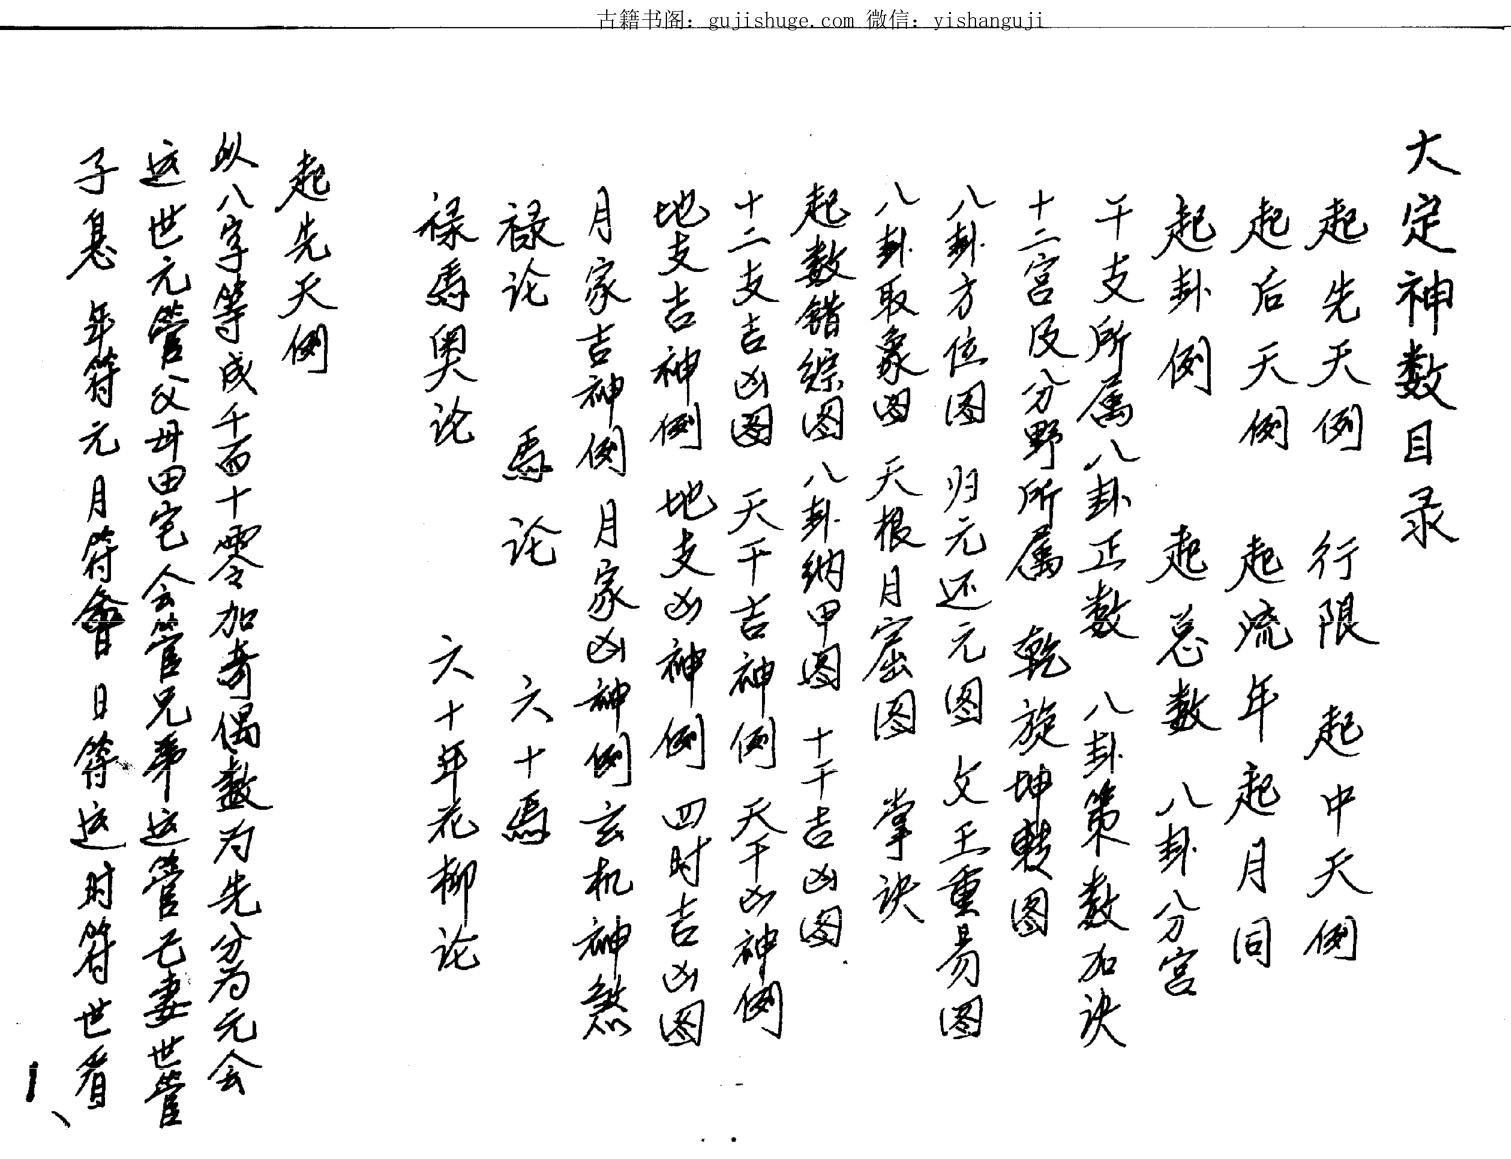 古籍书阁：gujishuge.com 微信：yishanguji
大定神数目录
起先天例 行限 起中天例
起后天例 起流年起月同
起卦例 起总数 八卦分宫
干支所属八卦正数 八卦策数加诀
十二宫及分野所属 乾旋坤转图
八卦方位图 归元还元图 文王重易图
八卦取象图 天根月窟图 掌诀
起数错综图 八卦纳甲图 十干吉凶图
十二支吉凶图 天干吉神例 天干凶神例
地支吉神例 地支凶神例 四时吉凶图
月家吉神例 月家凶神例 玄机神煞
禄论 馬论 六十馬
禄馬奥论 六十年花柳论
起先天例
以八字等成千百十零加奇偶数为先分为元会
运世元管父母田宅会管兄弟运管己妻世管
子息 年符元月符會日符运时符世看
1、